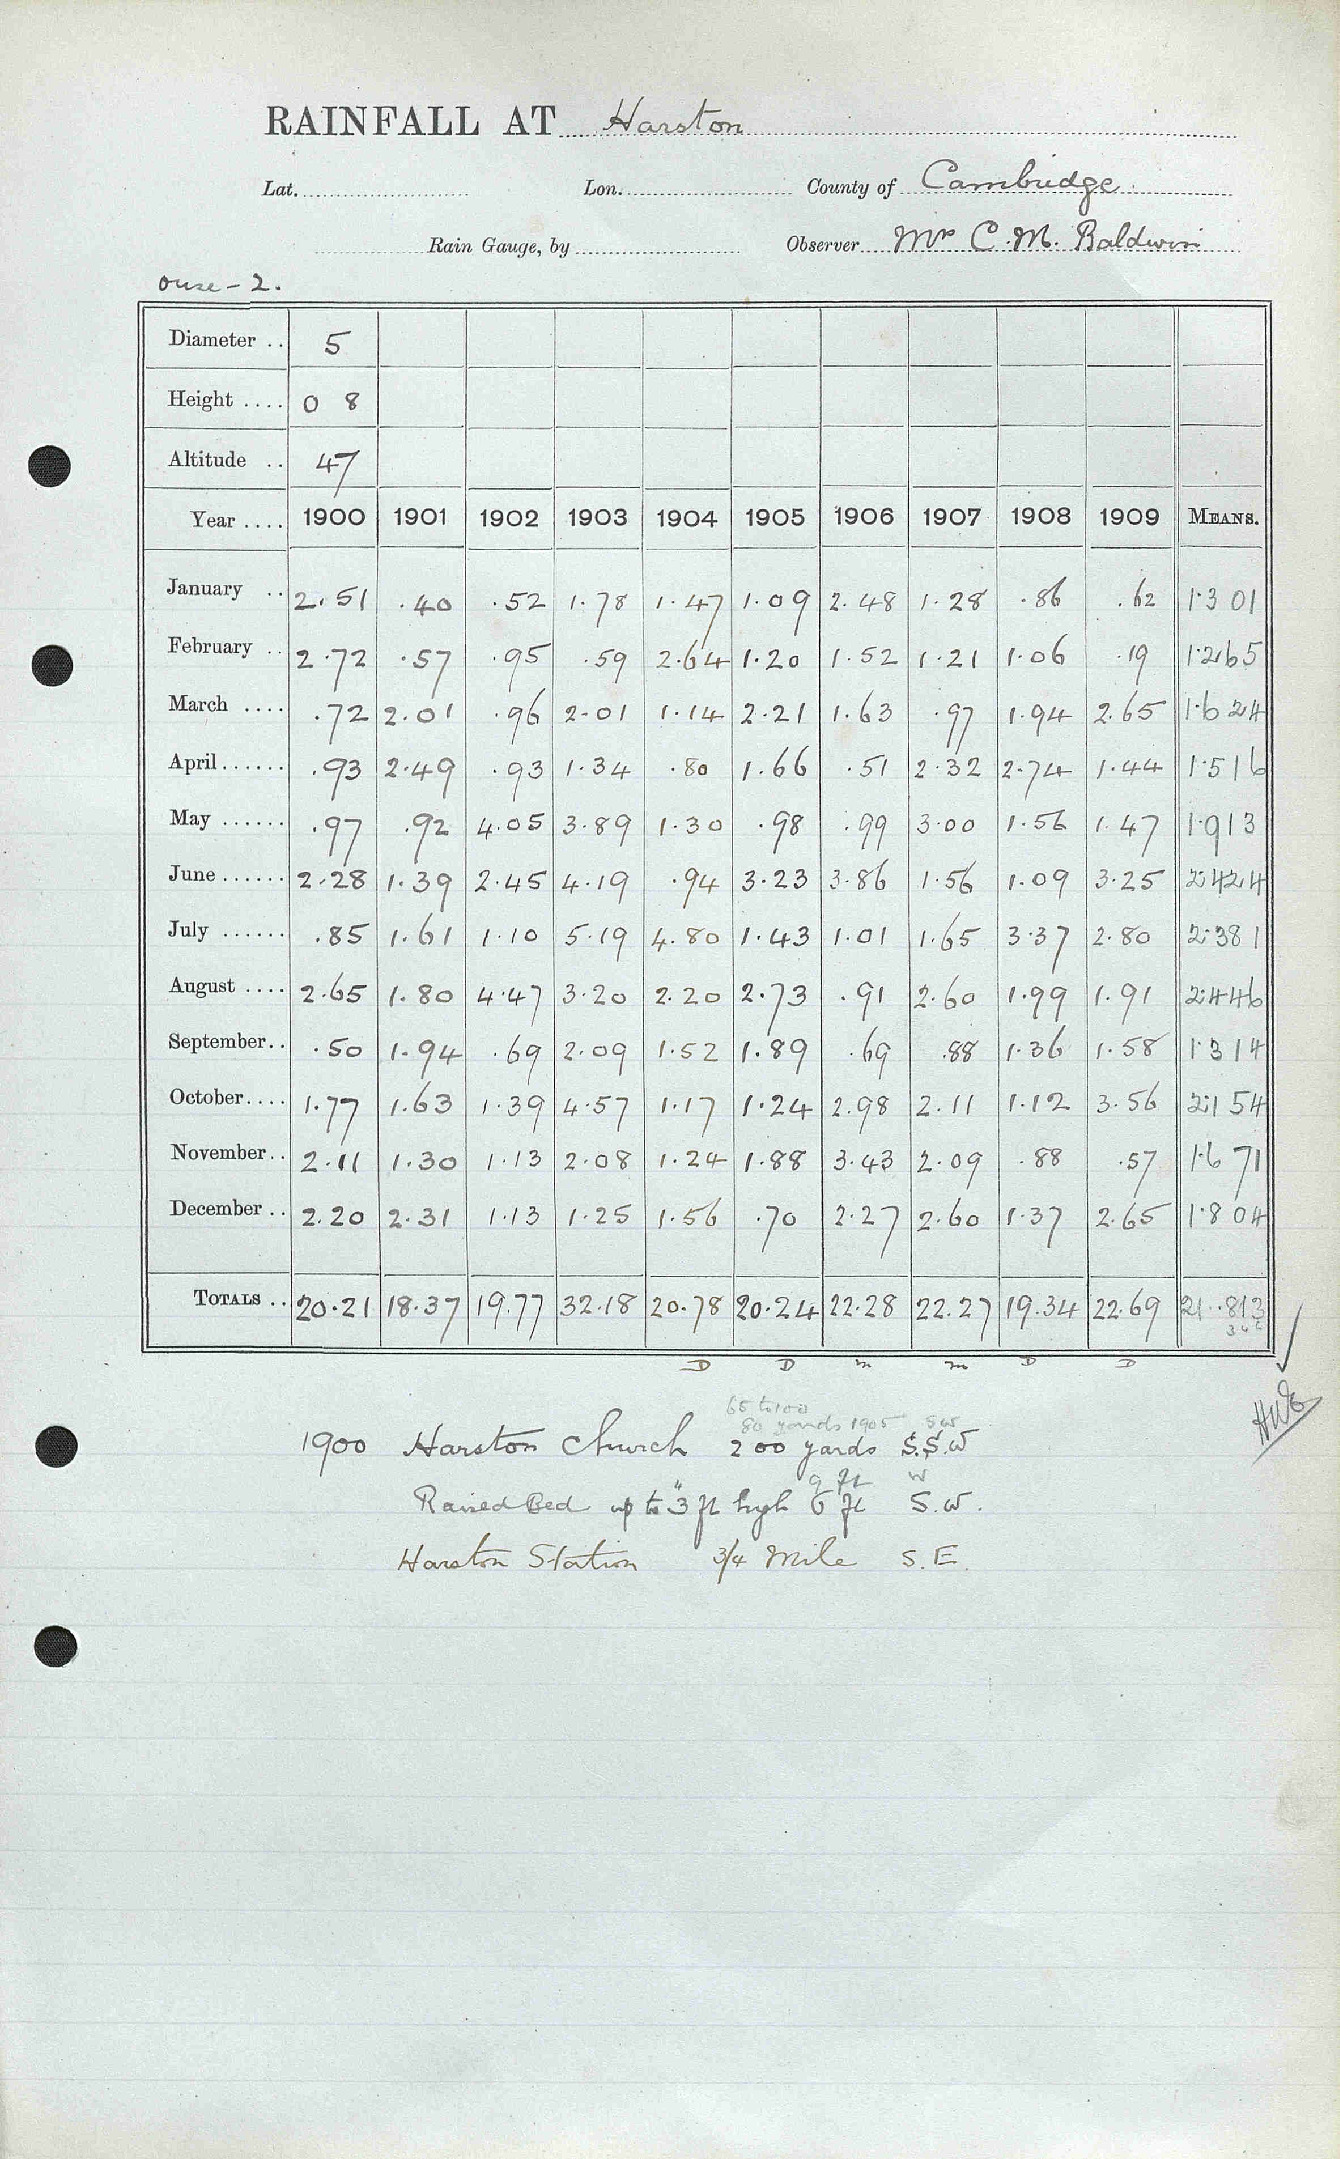 RAINFALL AT Harston
Lat. Lon. County of Cambridge
Rain Gauge, by Observer Mrs C. M. Baldwin
Ouse - 2.
Diameter .. 5
Height .... 0 8
Altitude .. 47
Year .... 1900 1901 1902 1903 1904 1905 1906 1907 1908 1909 MEANS.
January .. 2.51 .40 .52 1.78 1.47 1.09 2.48 1.28 .86 .62 1.301
February .. 2.72 .57 .95 .59 2.64 1.20 1.52 1.21 1.06 .19 1.265
March .... .72 2.01 .96 2.01 1.14 2.21 1.63 .97 1.94 2.65 1.624
April ...... .93 2.49 .93 1.34 .80 1.66 .51 2.32 2.74 1.44 1.516
May ...... .97 .92 4.05 3.89 1.30 .98 .99 3.00 1.56 1.47 1.913
June ...... 2.28 1.39 2.45 4.19 .94 3.23 3.86 1.56 1.09 3.25 2.424
July ...... .85 1.61 1.10 5.19 4.80 1.43 1.01 1.65 3.37 2.80 2.381
August .... 2.65 1.80 4.47 3.20 2.20 2.73 .91 2.60 1.99 1.91 2.446
September.. .50 1.94 .69 2.09 1.52 1.89 .69 .88 1.36 1.58 1.314
October.... 1.77 1.63 1.39 4.57 1.17 1.24 2.98 2.11 1.12 3.56 2.154
November.. 2.11 1.30 1.13 2.08 1.24 1.88 3.43 2.09 .88 .57 1.671
December .. 2.20 2.31 1.13 1.25 1.56 .70 2.27 2.60 1.37 2.65 1.804
TOTALS .. 20.21 18.37 19.77 32.18 20.78 20.24 22.28 22.27 19.34 22.69 21.813
D D m m D D
65 to 100
80 yards 1905 SW
1900 Harston Church 200 yards S.S.W
9 ft W
Raised Bed up to 3 ft high 6 ft S.W.
Harston Station 3/4 Mile S.E.